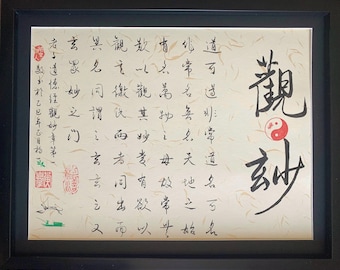 觀玅
道可道非常道名可名
非常名無名天地之始
有名萬物之母故常無
欲以觀其妙常有欲以
觀其徼此兩者同出而
異名同謂之玄玄之又
玄眾妙之門
老子道德經觀妙章第一
乙巳年